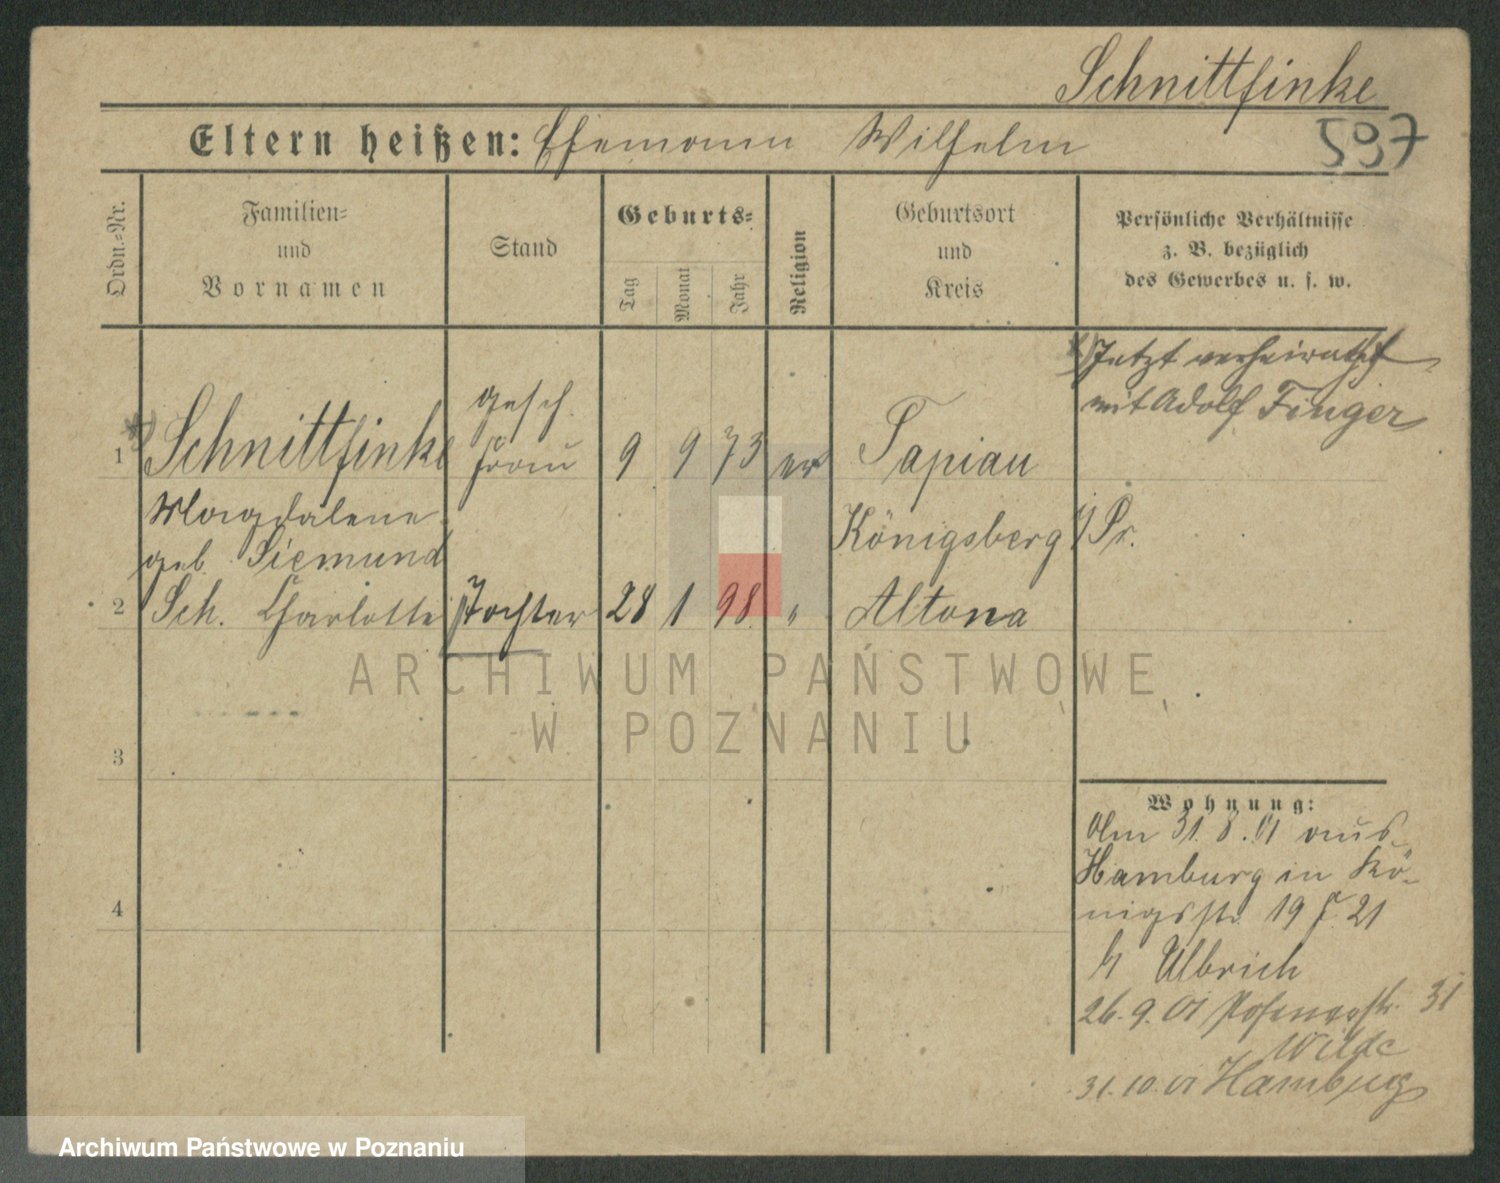 Schnittfinke
Eltern heißen: Ehemann Wilhelm
597
Ordn.-Nr.
Familien-
und
Vornamen
Stand
Geburts-
Tag
Monat
Jahr
Religion
Geburtsort
und
Kreis
Persönliche Verhältnisse
z. B. bezüglich
des Gewerbes u. s. w.
Jetzt verheirathet
mit Adolf Finger
gesch.
1 Schnittfinke Frau 9 9 73 ev Tapiau
Magdalene
geb. Siemund
Königsberg i/Pr.
2 Sch. Charlotte Tochter 28 1 98 " Altona
3
4
Wohnung:
Am 31. 8. 01 aus
Hamburg in Kö-
nigsstr. 19 21
b/ Ulbrich
26. 9. 01 Posenerstr. 31
Wilde
31. 10. 01 Hamburg
ARCHIWUM PAŃSTWOWE
W POZNANIU
Archiwum Państwowe w Poznaniu